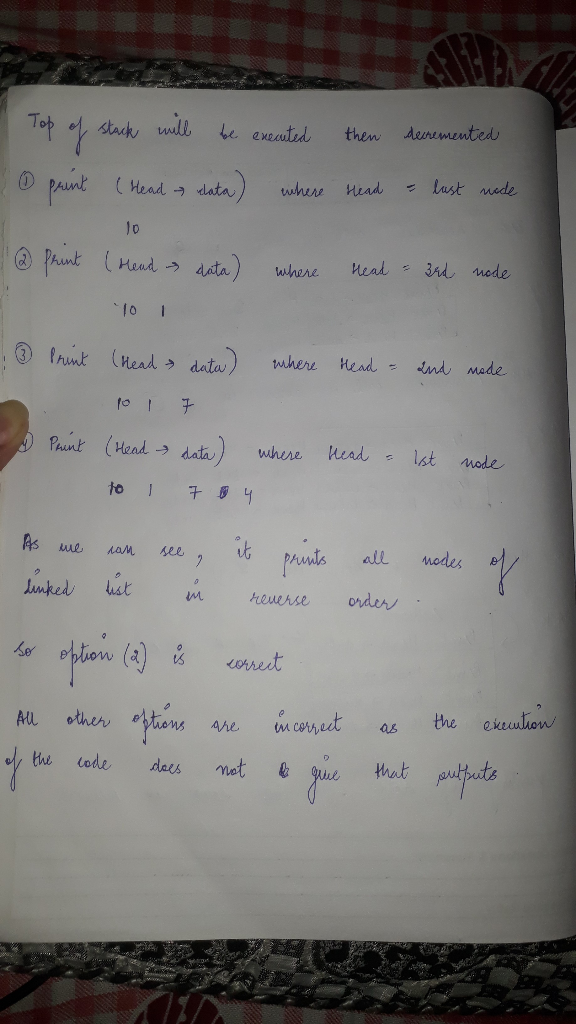 Top of stack will be executed then decremented
① print (Head → data) where Head = last node
10
② Print (Head → data) where Head = 3rd node
10 1
③ Print (Head → data) where Head = 2nd node
10 1 7
Print (Head → data) where Head = 1st node
10 1 7 4
As we can see, it prints all nodes of
linked list in reverse order.
So option (2) is correct
All other options are incorrect as the execution
of the code does not give that outputs.